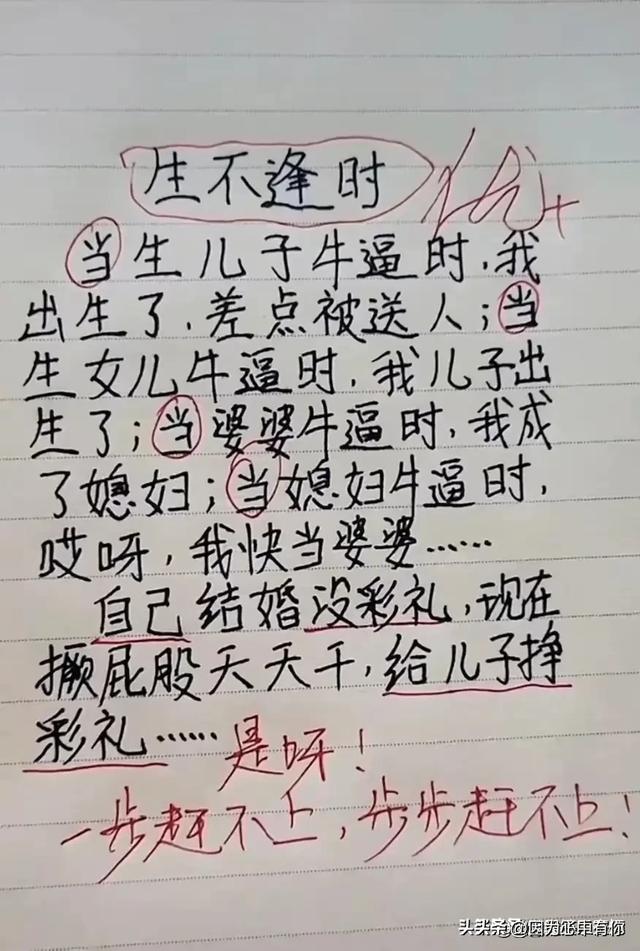 生不逢时
优+
当生儿子牛逼时，我
出生了，差点被送人；当
生女儿牛逼时，我儿子出
生了；当婆婆牛逼时，我成
了媳妇；当媳妇牛逼时，
哎呀，我快当婆婆……
自己结婚没彩礼，现在
撅屁股天天干，给儿子挣
彩礼……是呀！
一步赶不上，步步赶不上！
头条@因为此車有你